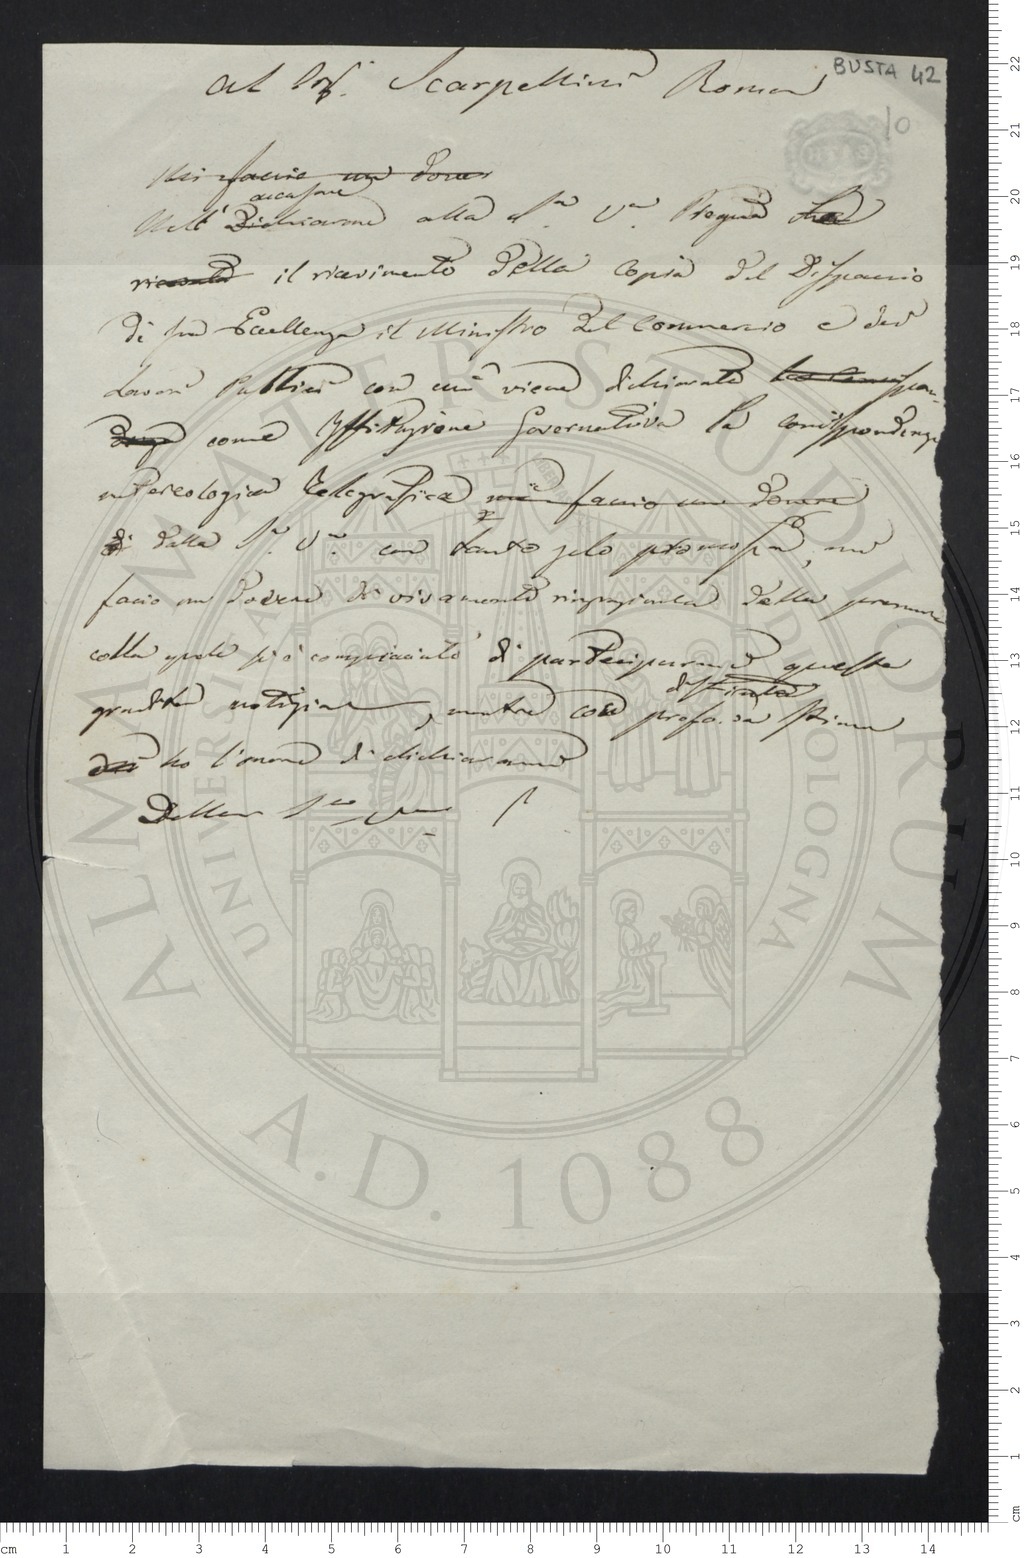 BUSTA 42
10
Al Prof. Scarpellini Roma
Mi faccio un dovere
accusare
Nell' Dichiarare alla S.ª V.ª Pregma
ricevuta il ricevimento della Copia del Dispaccio
di sua Eccellenza il Ministro del Commercio e dei
Lavori Pubblici con cui viene dichiarata la Corrispon-
denza come Istituzione Governativa la Corrispondenza
meteorologica telegrafica mi faccio un dovere
di dalla S.ª V.ª con tanto zelo promossa, mi
facio un dovere di vivamente ringraziarla della premura
colla quale si è compiaciuta di parteciparmi questa
distinta
gradita notizia, mentre con profonda stima
ho l'onore di dichiararmi
Della S.ª V.ª
ALMA MATER STUDIORUM
UNIVERSITÀ DI BOLOGNA
A.D. 1088
cm 1 2 3 4 5 6 7 8 9 10 11 12 13 14
22
21
20
19
18
17
16
15
14
13
12
11
10
9
8
7
6
5
4
3
2
1
cm